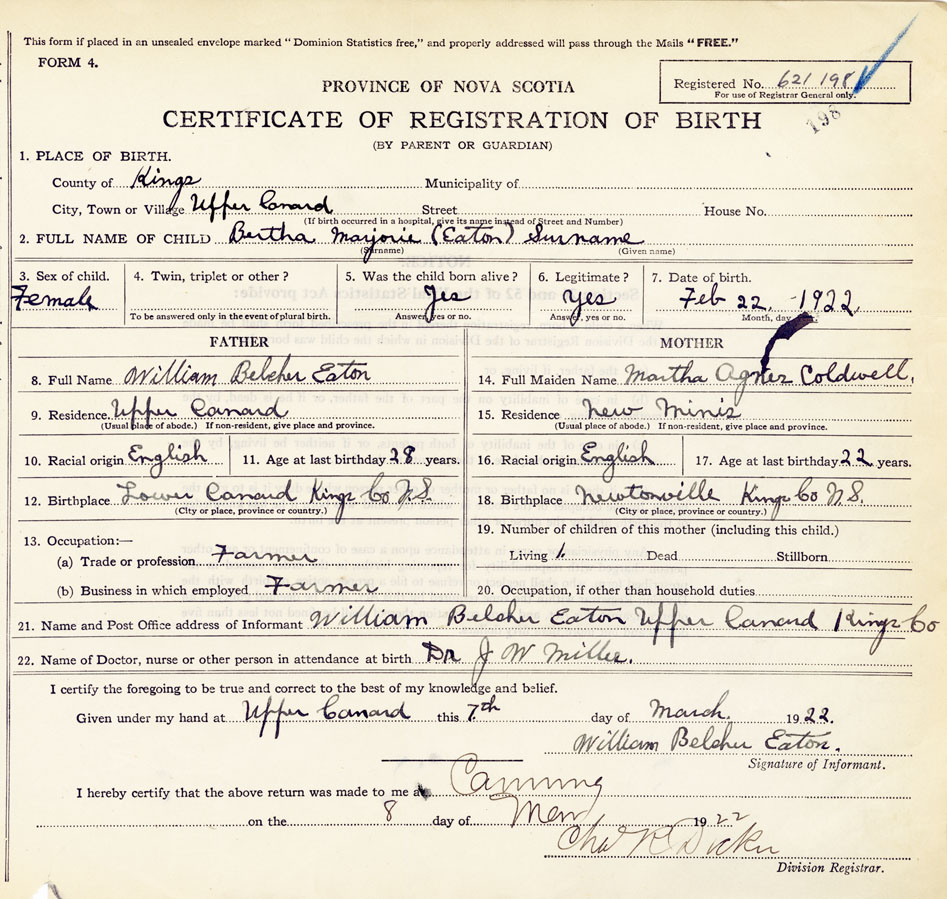 This form if placed in an unsealed envelope marked "Dominion Statistics free," and properly addressed will pass through the Mails "FREE."
FORM 4.
PROVINCE OF NOVA SCOTIA
Registered No. 621 198
For use of Registrar General only.
198
CERTIFICATE OF REGISTRATION OF BIRTH
(BY PARENT OR GUARDIAN)
1. PLACE OF BIRTH.
County of Kings Municipality of
City, Town or Village Upper Canard Street House No.
(If birth occurred in a hospital, give its name instead of Street and Number)
2. FULL NAME OF CHILD Bertha Marjorie (Eaton) Surname
(Surname) (Given name)
3. Sex of child. 4. Twin, triplet or other? 5. Was the child born alive? 6. Legitimate? 7. Date of birth.
Female Yes Yes Feb 22, 1922
To be answered only in the event of plural birth. Answer, yes or no. Answer, yes or no. Month, day
FATHER MOTHER
8. Full Name William Belcher Eaton 14. Full Maiden Name Martha Agnes Coldwell,
9. Residence. Upper Canard 15. Residence New Minis
(Usual place of abode.) If non-resident, give place and province. (Usual place of abode.) If non-resident, give place and province.
10. Racial origin English 11. Age at last birthday 28 years. 16. Racial origin English 17. Age at last birthday 22 years.
12. Birthplace Lower Canard Kings Co N.S. 18. Birthplace Newtonville Kings Co N.S.
(City or place, province or country.) (City or place, province or country.)
13. Occupation:— 19. Number of children of this mother (including this child.)
(a) Trade or profession Farmer Living 1 Dead Stillborn
(b) Business in which employed Farmer 20. Occupation, if other than household duties
21. Name and Post Office address of Informant William Belcher Eaton Upper Canard Kings Co
22. Name of Doctor, nurse or other person in attendance at birth Dr J W Miller.
I certify the foregoing to be true and correct to the best of my knowledge and belief.
Given under my hand at Upper Canard this 7th day of March. 1922.
William Belcher Eaton.
Signature of Informant.
I hereby certify that the above return was made to me at Canning
on the 8 day of 1922
Division Registrar.